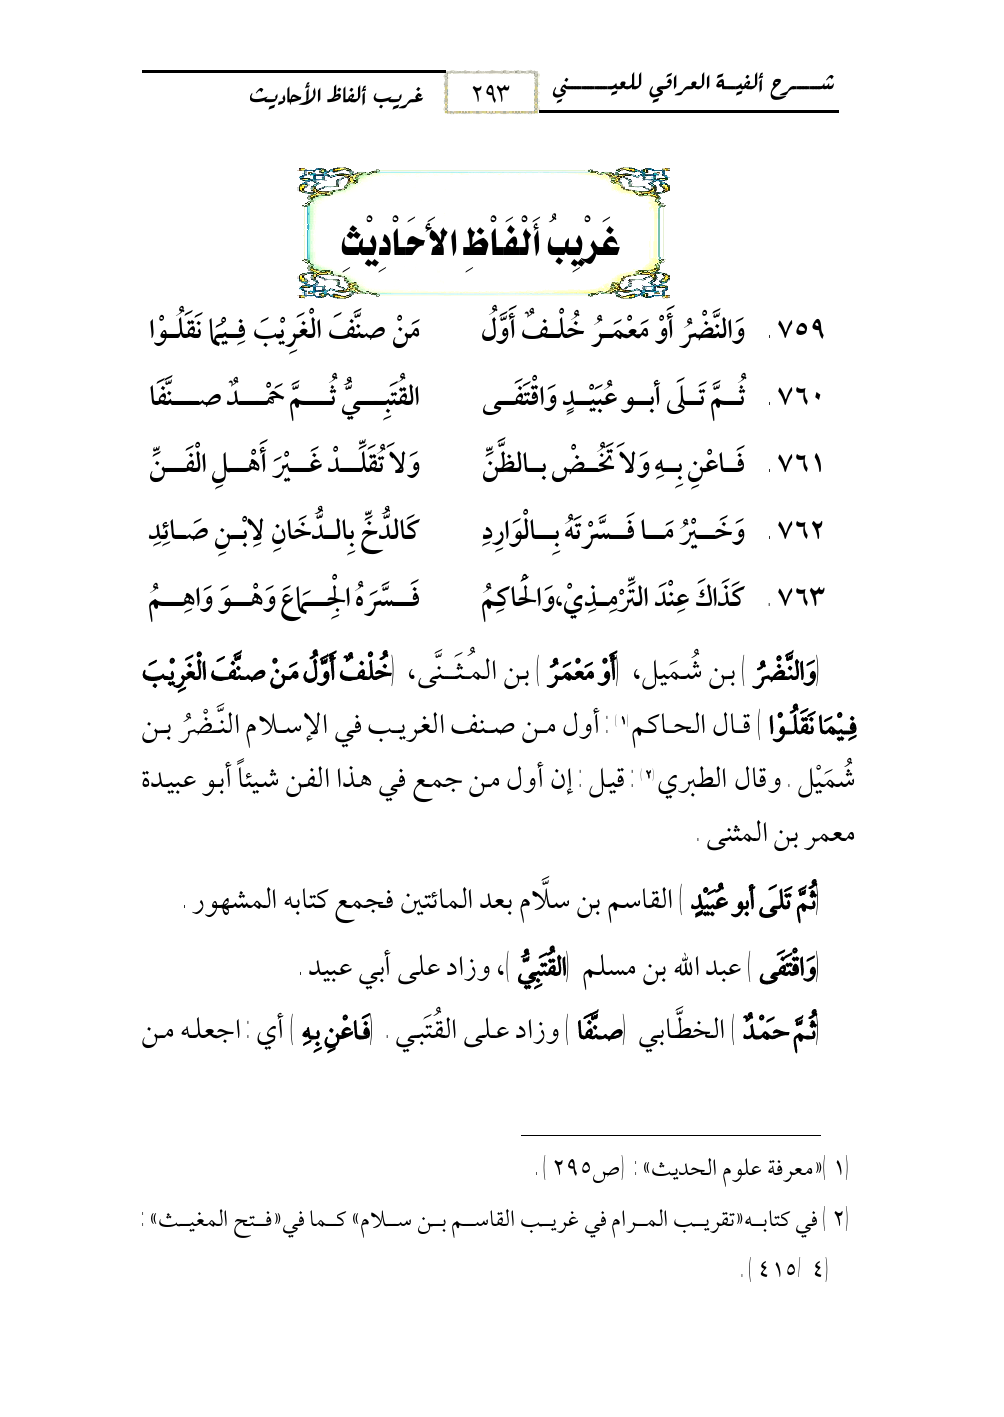 شـــرح ألفيـة العراقي للعيــــني
٢٩٣
غريب ألفاظ الأحاديث
غَرْيِبُ أَلْفَاْظِ الأَحَاْدِيْثِ
٧٥٩ . وَالنَّضْرُ أَوْ مَعْمَـرُ خُلْـفٌ أَوَّلُ مَنْ صنَّفَ الْغَرِيْبَ فِـيْمَا نَقَلُـوْا
٧٦٠ . ثُـمَّ تَـلَى أبـو عُبَيْـدٍ وَاقْتَفَـى القُتَبِـــيُّ ثُـــمَّ حَمْــدٌ صــــنَّفَا
٧٦١ . فَـاعْنِ بِـهِ وَلاَ تَخُـضْ بـالظَّنِّ وَلاَ تُقَلِّــدْ غَــيْرَ أَهْــلِ الْفَــنِّ
٧٦٢ . وَخَــيْرُ مَـا فَـسَّرْتَهُ بِـالْوَارِدِ كَالدُّخِّ بِالـدُّخَانِ لِابْـنِ صَـائِدِ
٧٦٣ . كَذَاكَ عِنْدَ التِّرْمِـذِيْ،وَالْحَاكِمُ فَـسَّرَهُ الْجِـمَاعَ وَهْـوَ وَاهِــمُ
(وَالنَّضْرُ ) بـن شُمَيل، (أَوْ مَعْمَرُ ) بن المُثَـنَّى، (خُلْفٌ أَوَّلُ مَنْ صنَّفَ الْغَرِيْبَ
فِيْمَا نَقَلُوْا ) قـال الحـاكم(١): أول مـن صـنف الغريـب في الإسـلام النَّـضْرُ بـن
شُمَيْل . وقال الطبري(٢): قيل : إن أول مـن جمـع في هـذا الفـن شيئاً أبـو عبيـدة
معمر بن المثنى .
(ثُمَّ تَلَى أبو عُبَيْدٍ ) القاسم بن سلَّام بعد المائتين فجمع كتابه المشهور .
(وَاقْتَفَى ) عبد الله بن مسلم (القُتَبِيُّ )، وزاد على أبي عبيد .
(ثُمَّ حَمْدٌ ) الخطَّـابي (صنَّفَا ) وزاد عـلى القُتَبـي . (فَاعْنِ بِهِ ) أي : اجعلـه مـن
(١ )«معرفة علوم الحديث» : (ص٢٩٥ ) .
(٢ ) في كتابـه«تقريـب المـرام في غريـب القاسـم بـن سـلام» كـما في«فـتح المغيـث» :
(٤ /٤١٥ ) .